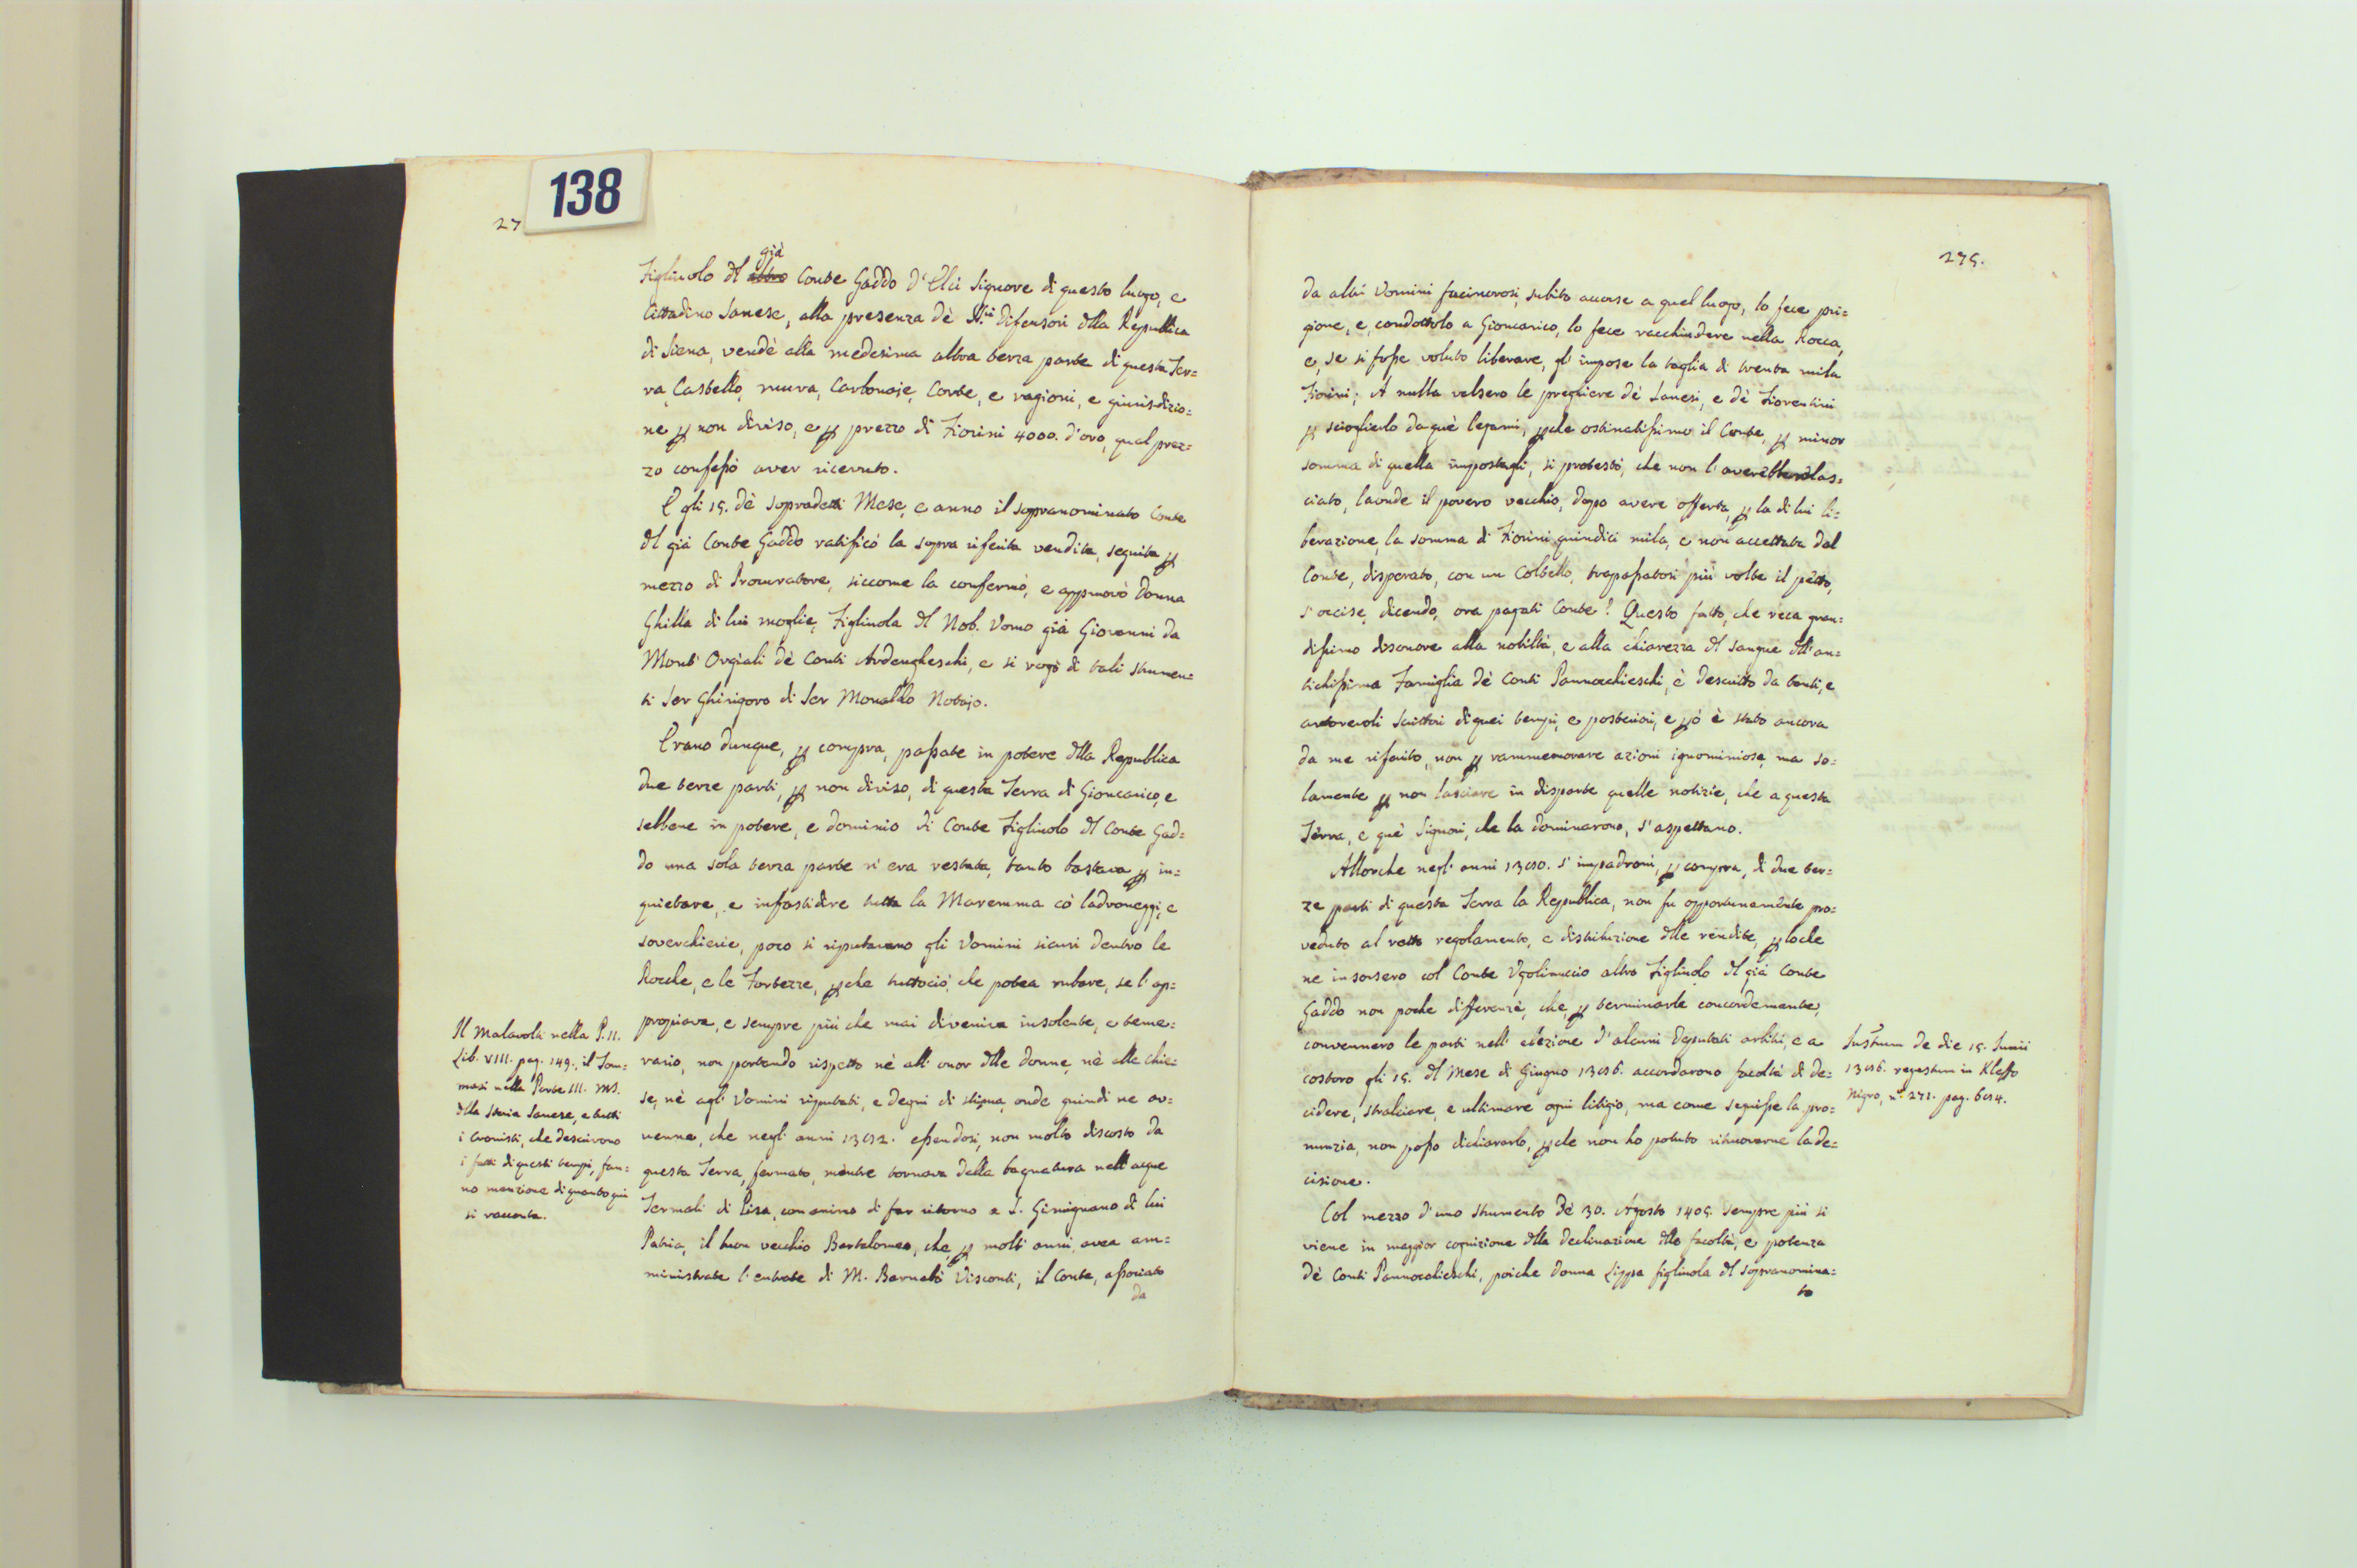 138
27
Figliuolo dl già altro Conte Gaddo d'Elci Signore di questo luogo, e
Cittadino Sanese, alla presenza dè SS.ri Difensori dlla Repubblica
di Siena, vendè alla medesima altra terza parte di questa Ter=
ra, Castello, mura, Carbonaje, Corte, e ragioni, e giurisdizio=
ne p non diviso, e p prezzo di Fiorini 4000. d'oro, qual prez=
zo confessò aver ricevuto.
E gli 15. dè sopradetti Mese, e anno il sopranominato Conte
dl già Conte Gaddo ratificò la sopra riferita vendita, seguita p
mezzo di Procuratore, siccome la confermò, e approvò Donna
Ghilla di lui moglie, Figliuola dl Nob. Uomo già Giovanni da
Mont' Orgiali dè Conti Ardengheschi, e si rogò di tali strumen=
ti Ser Ghirigoro di Ser Monaldo Notajo.
Erano dunque, p compra, passate in potere dlla Repubblica
due terze parti, p non diviso, di questa Terra di Gioncarico, e
sebbene in potere, e dominio di Conte Figliuolo dl Conte Gad=
do una sola terza parte n'era restata, tanto bastava p in=
quietare, e infastidire tutta la Maremma có ladroneggi, e
soverchierie, poco si riputavano gli Uomini sicuri dentro le
Rocche, e le Fortezze, pche tuttociò, che potea rubare, se l'ap=
propriava, e sempre più che mai diveniva insolente, e teme=
rario, non portando rispetto nè all'onor dlle donne, nè alle Chie=
se, nè agl'Uomini riputati, e degni di stima, onde quindi ne av=
venne, che negl'anni 1392. essendosi, non molto discosto da
questa Terra, fermato, mentre tornava dalla bagnatura nell'acque
Termali di Pisa, con animo di far ritorno a S. Gimignano di lui
Patria, il buon vecchio Bartolomeo, che, p molti anni, avea am=
ministrate l'entrate di M. Barnabò Visconti, il Conte, associato
da
Il Malavolti nella P. II.
Lib. VIII. pag. 149., il Tom=
masi nella Parte III. MS.
dlla Storia Sanese, e tutti
i Cronisti, che descrivono
i fatti di questi tempi, fan=
no menzione di quanto qui
si racconta.
275.
da altri Uomini facinorosi, subito accorse a quel luogo, lo fece pri=
gione, e, condottolo a Gioncarico, lo fece racchiudere nella Rocca,
e, se si fosse voluto liberare, gl'impose la taglia di trenta mila
Fiorini; A nulla valsero le preghiere dè Sanesi, e dè Fiorentini
p sciogliерlo da què legami, pche ostinatissimo il Conte, p minor
somma di quella impostagli, si protestò, che non l'averebbe rilas=
ciato, laonde il povero vecchio, dopo avere offerta, p la di lui li=
berazione, la somma di Fiorini quindici mila, e non accettata dal
Conte, disperato, con un Coltello, trapassatosi più volte il petto,
s'occise, dicendo, ora pagati Conte! Questo fatto, che reca gran=
dissimo disonore alla nobiltà, e alla chiarezza dl sangue dll'an=
tichissima Famiglia dè Conti Pannocchieschi, è descritto da tanti, e
autorevoli Scrittori di quei tempi, e posteriori, e pò è stato ancora
da me riferito, non p rammemorare azioni ignominiose, ma so=
lamente p non lasciare in disparte quelle notizie, che a questa
Terra, e què Signori, che la dominarono, s'aspettano.
Allorche negl'anni 1390. s'impadronì, p compra, di due ter=
ze parti di questa Terra la Repubblica, non fu opportunamente pro=
veduto al retto regolamento, e distribuzione dlle rendite, ploche
ne insorsero col Conte Ugolinuccio altro Figliuolo dl già Conte
Gaddo non poche differenze, che, p terminarle concordemente,
convennero le parti nell'elezione d'alcuni Deputati arbitri, e a
costoro gli 15. dl Mese di Giugno 1396. accordarono facoltà di de=
cidere, stralciare, e ultimare ogni litigio, ma come seguisse la pro=
nunzia, non posso dichiararlo, pche non ho potuto ritrovarne la de=
cisione.
Col mezzo d'uno strumento dè 30. Agosto 1405. sempre più si
viene in maggior cognizione dlla declinazione dlle facoltà, e potenza
dè Conti Pannocchieschi, poiche Donna Lippa figliuola dl sopranomina=
to
Instrum de die 15. Junii
1396. registum in Kleffo
Nigro, n.° 271. pag. 694.